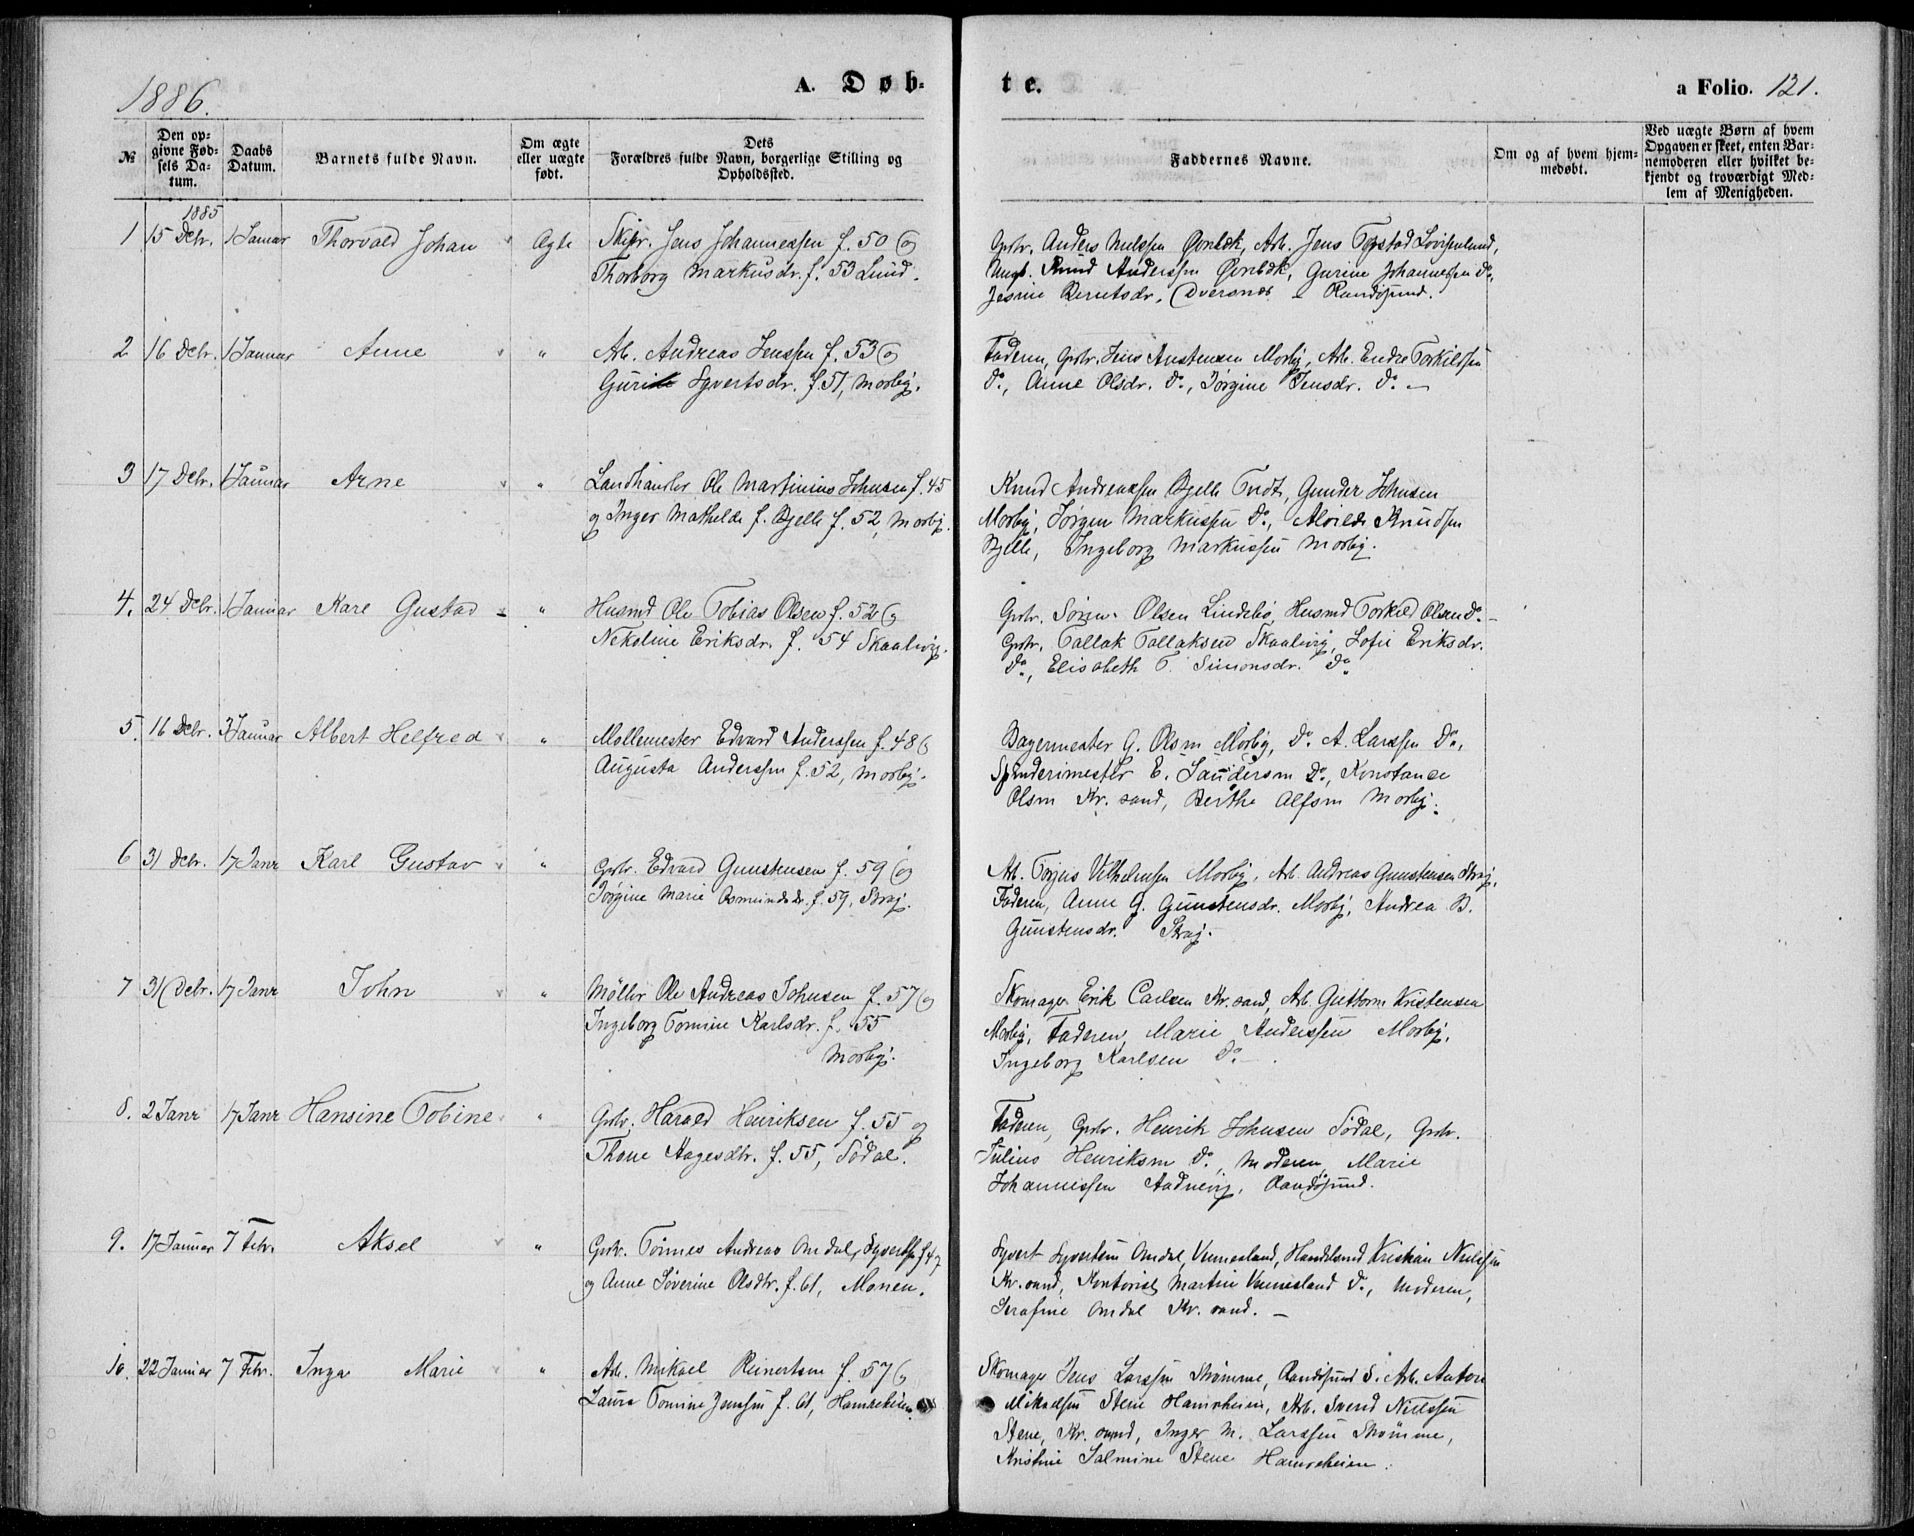 1886.
A. Døb-
te.
a Folio. 121.
№
Den op-
givne Fød-
sels Da-
tum.
Daabs
Datum.
Barnets fulde Navn.
Om ægte
eller uægte
født.
Dets
Forældres fulde Navn, borgerlige Stilling og
Opholdssted.
Faddernes Navne.
Om og af hvem hjem-
medøbt.
Ved uægte Børn af hvem
Opgaven er skeet, enten Bar-
nemoderen eller hvilket be-
kjendt og troværdigt Med-
lem af Menigheden.
1885
1 15 Debr. 1 Januar Thorvald Johan Ægte Skipr. Jens Johannessen f. 50 og
Thorborg Markusdr. f. 53 Lund.
Grbr. Anders Nielssen Øvrebæk, Arb. Jens Topstad Lovisenlund,
Ungk. Knud Anderssen Øvrebæk, Gurine Johannessen do.
Jesine Berntsdr. Dversnes Randøsund.
2 16 Debr. 1 Januar Anne " Arb. Andreas Jenssen f. 53 og
Gurine Syvertsdr. f. 51, Mosby.
Faderen, Grbr. Jens Anstensen Mosby, Arb. Endre Torkildsen
do., Anne Olsdr. do., Jørgine Jensdr. do. –
3 17 Debr. 1 Januar Arne " Landhandler Ole Martinius Johnsen f. 45
og Inger Mathilde f. Bjelle f. 52, Mosby.
Knud Andreassen Bjelle Tvedt, Gunder Johnsen
Mosby, Jørgen Markussen do., Alvilde Knudsen
Bjelle, Ingeborg Markussen Mosby.
4. 24 Debr. 1 Januar Karl Gustav " Husmd Ole Tobias Olsen f. 52 og
Nekoline Eriksdr. f. 54 Skaalevig.
Grbr. Søren Olsen Lindebø, Husmd Torkild Olsen do. –
Grbr. Tallak Tallaksen Skaalevig, Sofie Eriksdr.
do., Elisabeth T. Simonsdr. do
5. 16 Debr. 3 Januar Albert Helfred " Møllemester Edvard Anderssen f. 48 og
Augusta Anderssen f. 52, Mosby.
Bagermester G. Olsen Mosby, do. A. Larssen do.,
Spinderimester E. do., Konstance
Olsen Kr. sand, Berthe Alfsen Mosby.
6 31 Debr. 17 Janr Karl Gustav " Grbr. Edvard Gunstensen f. 59 og
Jørgine Marie Osmundsdr. f. 59, Straj.
Arb. Torjus Vilhelmsen Mosby, Arb. Andreas Gunstensen Straj,
Faderen, Anne G. Gunstensdr. Mosby, Andrea B.
Gunstensdr. Straj.
7 31 Debr. 17 Janr John " Møller Ole Andreas Johnsen f. 57 og
Ingeborg Tomine Karlsdr. f. 55
Mosby.
Skomager Erik Carlsen Kr. sand, Arb. Guttorm Kristensen
Mosby, Faderen, Marie Anderssen Mosby,
Ingeborg Karlsen do. – .
8. 2 Janr 17 Janr Hansine Tobine " Grbr. Harald Henriksen f. 55 og
Thone Aagesdtr. f. 55, Sødal.
Faderen, Grbr. Henrik Johnsen Sødal, Grbr.
Julius Henriksen do., Moderen, Marie
Johannessen Aadnevig, Randøsund.
9. 17 Januar 7 Febr. Aksel " Grbr. Tønnes Andreas Omdal, Syvertsen f. 47
og Anne Severine Olsdtr. f. 61, Monen.
Syvert Syvertsen Omdal, Vennesland, Handelsmd Kristian Nielssen
Kr. sand, Kontorist Martin Vennesland do., Moderen,
Serafine Omdal Kr. sand. –
10. 22 Januar 7 Febr. Inga Marie " Arb. Mikael Reinertsen f. 57 og
Laura Tomine Jenssen f. 61, Hamreheien
Skomager Jens Larssen Strømme, Randøsund S. Arb. Anton
Mikaelsen Stene Hamreheien, Arb. Svend Nielssen
Stene, Kr. sand, Inger M. Larssen Strømme,
Kristine Salmine Stene Hamreheien.